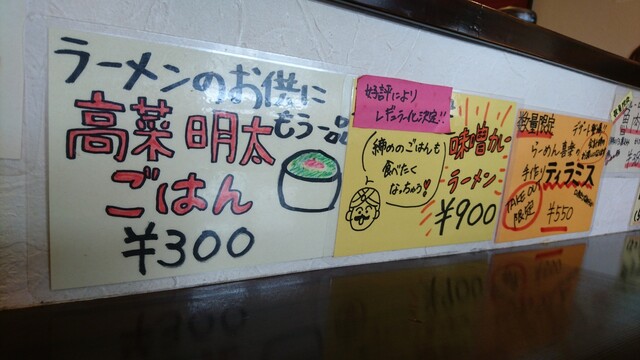 ラーメンのお供に
もう一品
高菜明太
ごはん
¥300
好評により
レギュラー化決定!!
締めのごはんも
食べたく
なっちゃう!
味噌カレー
ラーメン
¥900
数量限定
らーめん喜楽
手作り
ティラミス
TAKE OUT
限定
¥550